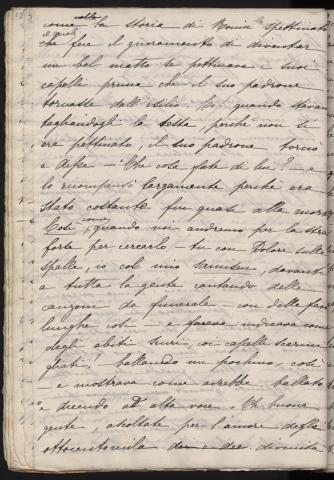 come la storia di Bouin lo spettinato
che fece il giuramento di diventar
un bel matto se pettinava i suoi
capelli prima che il suo padrone
tornasse dall'esilio. Di, quando stava
tagliandogli la testa, perchè non si
era pettinato, il suo padrone tornò
e disse — "Che cosa fate di lui? — e
lo ricompensò largamente perchè era
stato costante fin quasi alla morte
Così, quando noi andremo per la
forte per cercarlo — tu con Dolore sulle
spalle, io col mio samisen, davanti
a tutta la gente cantando delle
canzoni da funerale — con delle
lunghe così — e facce
degli abiti scuri, coi capelli
ballando un pochino, così
e mostrava come avrebbe ballato
e dicendo ad alta voce. Oh buona
gente, ascoltate per l'amore degli
ottocentomila dei e dee.